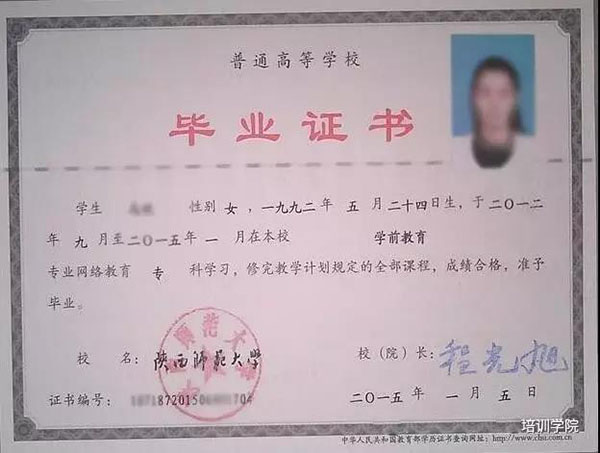 普通高等学校
毕业证书
学生 性别 女，一九九二年 五 月二十四日生，于二〇一二
年 九 月至二〇一五年 一 月在本校 学前教育
专业网络教育 专 科学习，修完教学计划规定的全部课程，成绩合格，准予
毕业。
校 名：陕西师范大学 校（院）长：程光旭
证书编号： 二〇一五年 一 月 五 日
中华人民共和国教育部学历证书查询网址：http://www.chsi.com.cn
培训学院